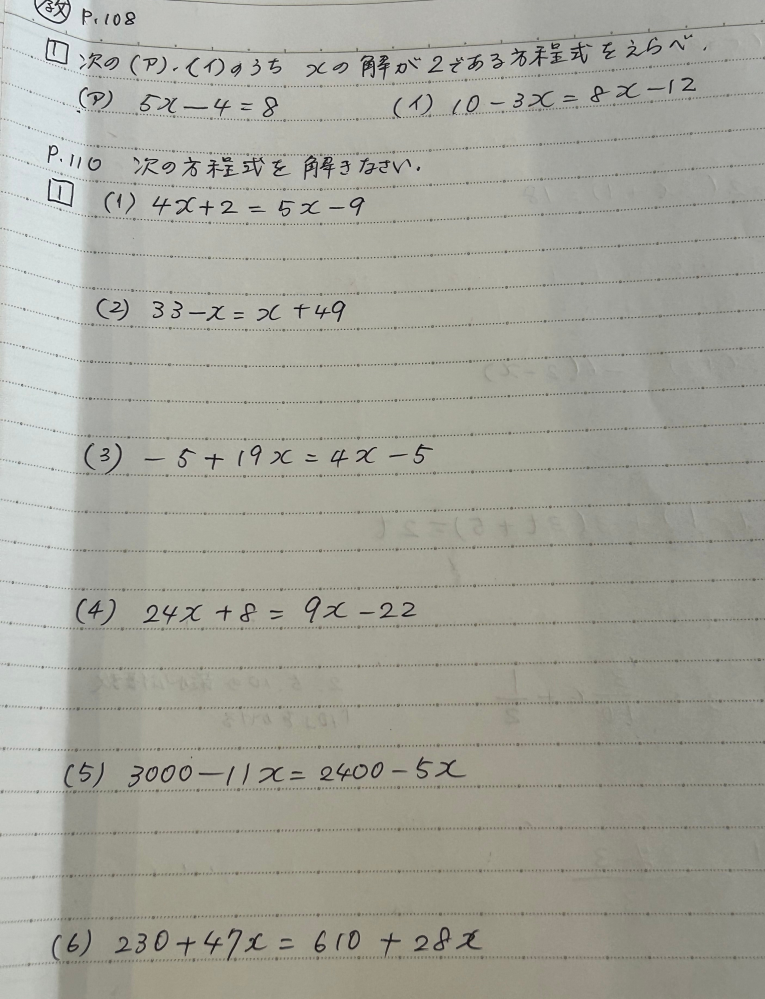 教 P.108
1 次の(ア)・(イ)のうち xの解が2である方程式をえらべ.
(ア) 5x-4=8 (イ) 10-3x=8x-12
P.110 次の方程式を解きなさい.
1 (1) 4x+2=5x-9
(2) 33-x=x+49
(3) -5+19x=4x-5
(4) 24x+8=9x-22
(5) 3000-11x=2400-5x
(6) 230+47x=610+28x